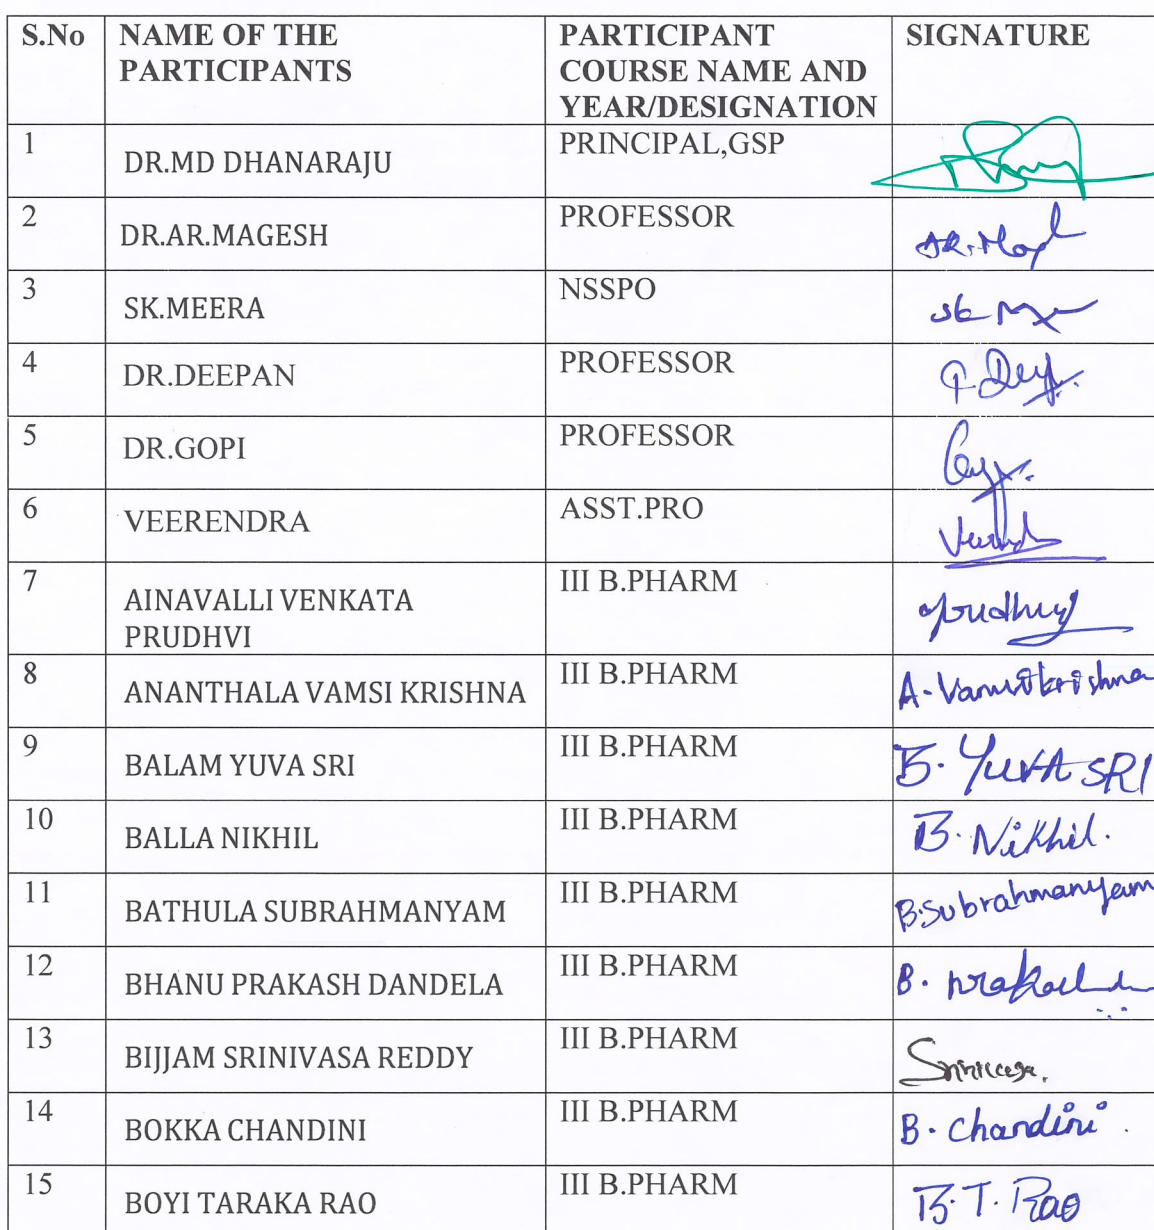 S.No NAME OF THE PARTICIPANT SIGNATURE
PARTICIPANTS COURSE NAME AND
YEAR/DESIGNATION
1 DR.MD DHANARAJU PRINCIPAL,GSP
2 DR.AR.MAGESH PROFESSOR
3 SK.MEERA NSSPO
4 DR.DEEPAN PROFESSOR
5 DR.GOPI PROFESSOR
6 VEERENDRA ASST.PRO
7 AINAVALLI VENKATA III B.PHARM
PRUDHVI
8 ANANTHALA VAMSI KRISHNA III B.PHARM A-Vamsikrishna
9 BALAM YUVA SRI III B.PHARM B. YUVA SRI
10 BALLA NIKHIL III B.PHARM B. Nikhil.
11 BATHULA SUBRAHMANYAM III B.PHARM B.Subrahmanyam
12 BHANU PRAKASH DANDELA III B.PHARM B.
13 BIJJAM SRINIVASA REDDY III B.PHARM
14 BOKKA CHANDINI III B.PHARM B. Chandini.
15 BOYI TARAKA RAO III B.PHARM B.T. Rao